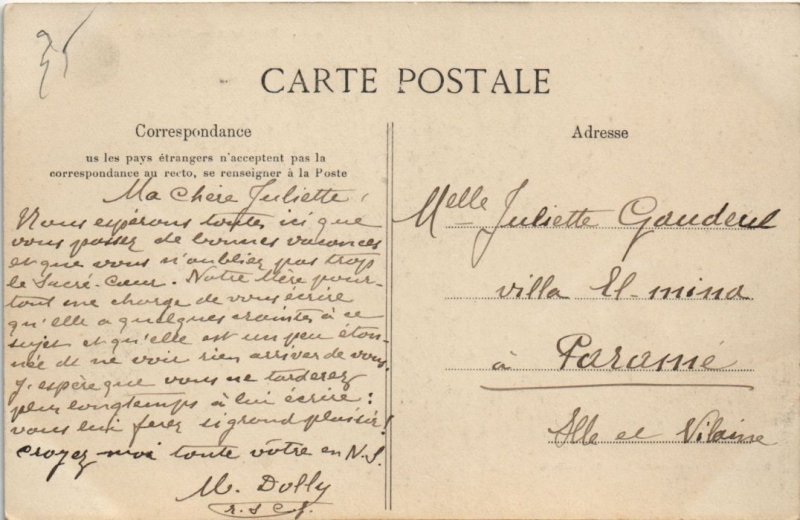 35
CARTE POSTALE
Correspondance
us les pays étrangers n'acceptent pas la
correspondance au recto, se renseigner à la Poste
Ma chère Juliette,
Nous espérons toutes ici que
vous passez de bonnes vacances
et que vous n'oubliez pas trop
le Sacré-Cœur. Notre Mère pour-
tant me charge de vous écrire
qu'elle a quelques craintes à ce
sujet et qu'elle est un peu éton-
née de ne voir rien arriver de vous.
J'espère que vous ne tarderez
plus longtemps à lui écrire :
vous lui ferez si grand plaisir !
Croyez-moi toute vôtre en N. S.
M. Dolly
r. s c J.
Adresse
Melle Juliette Gaudeul
villa El-mina
à Paramé
Ille et Vilaine